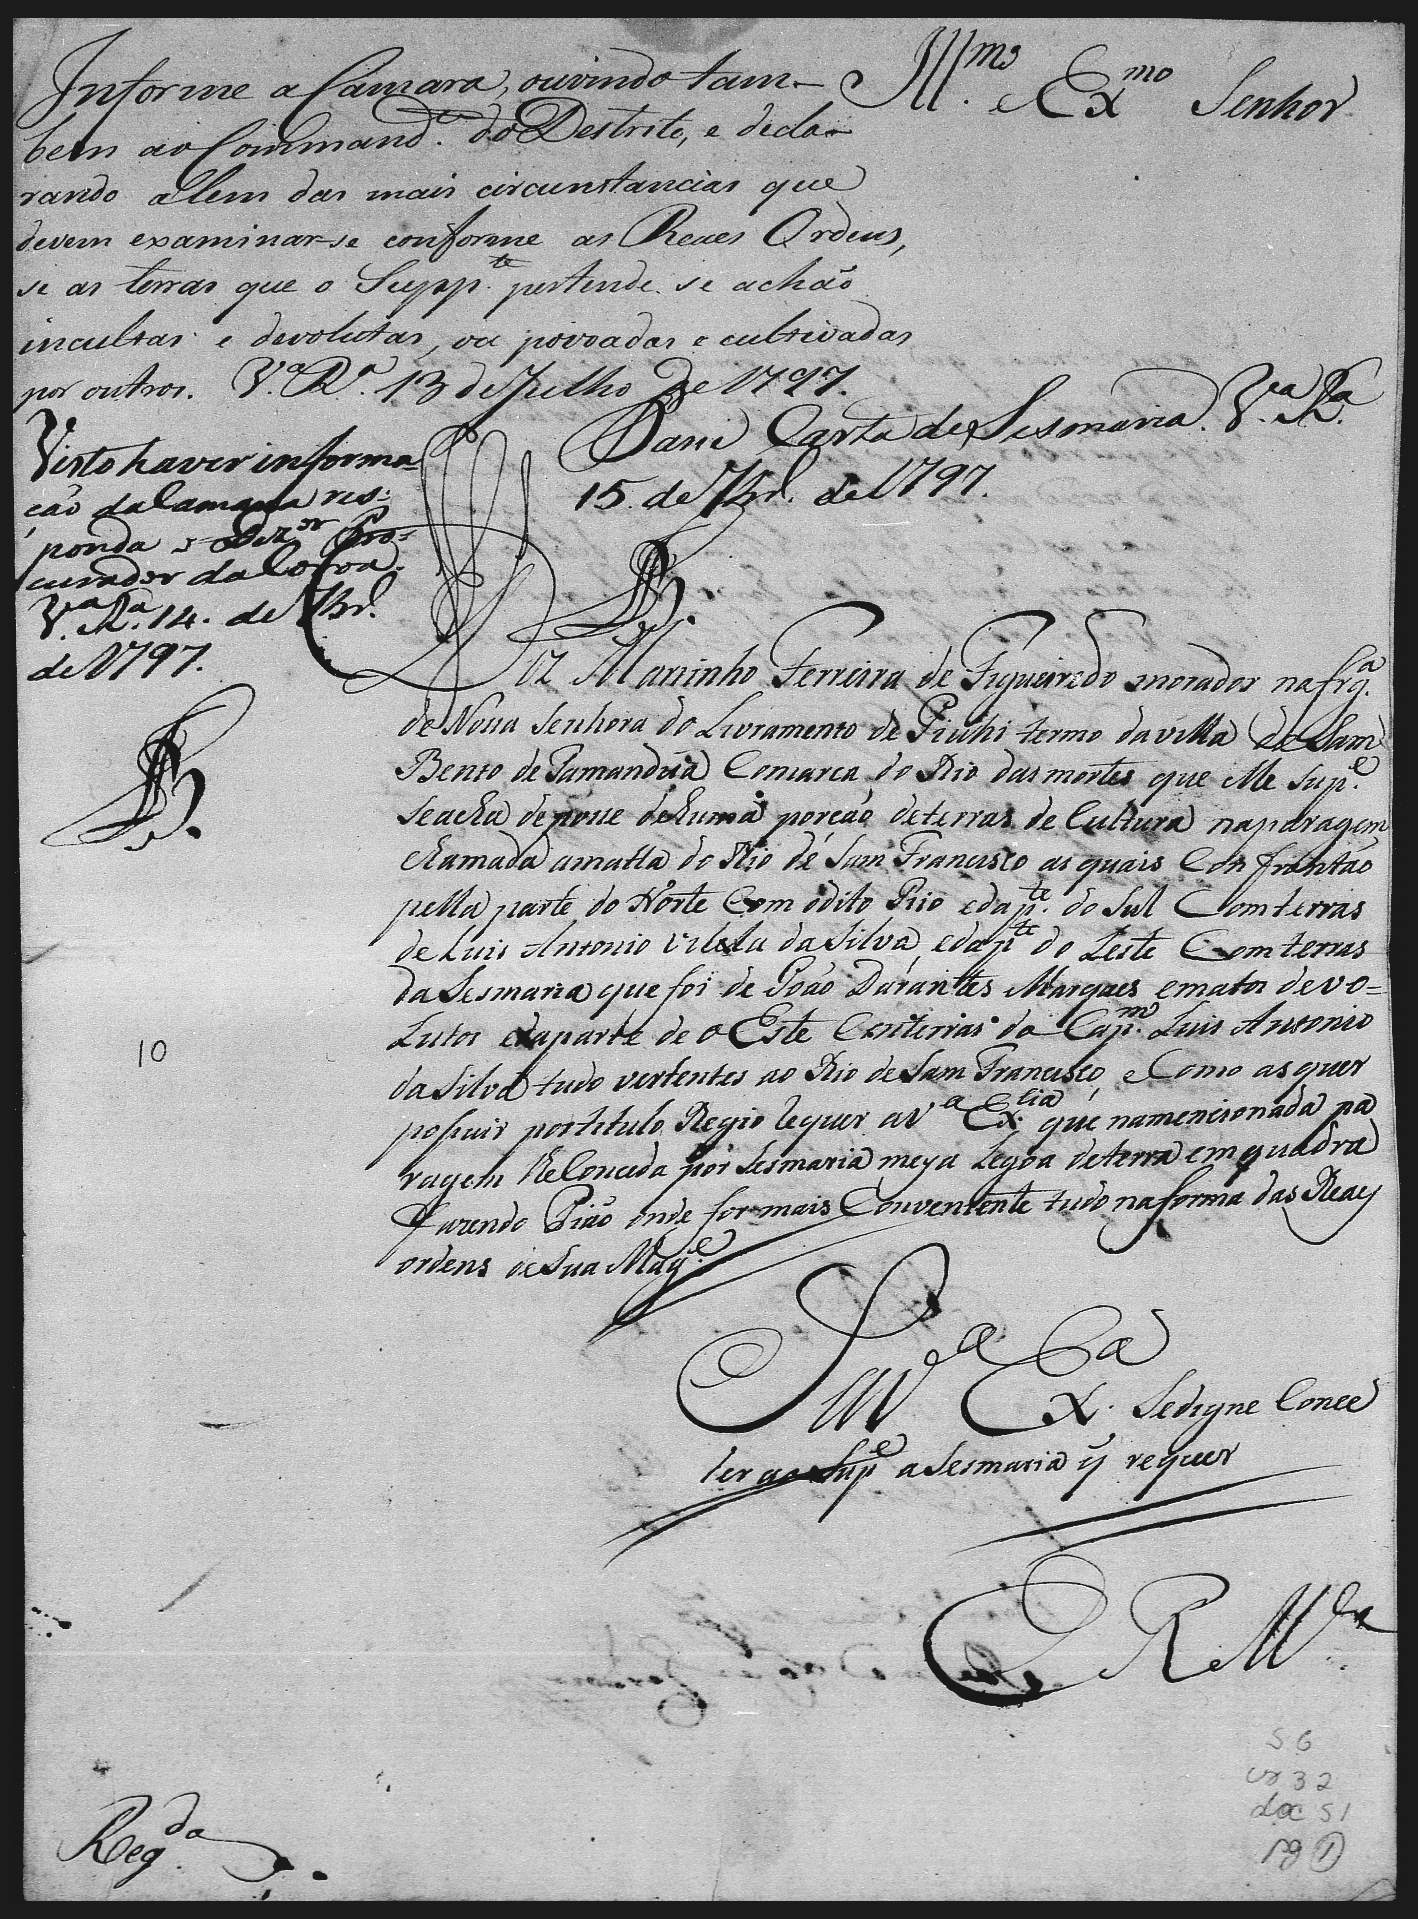 Informe a Camara, ouvindo tam-
bem ao Commandte. do Destrito, e decla-
rando alem das mais circunstancias que
devem examinar-se conforme as Reaes Ordens,
se as terras que o Suppte. pertende se achão
incultas e devolutas, ou povoadas e cultivadas
por outros. Va. Ra. 13 de Julho de 1797.
Illmo. e Exmo Senhor
Passe Carta de Sesmaria. Va. Ra.
15. de 7brº. de 1797.
Visto haver informa-
ção da Camara res-
ponda o Dezor Pro-
curador da Coroa.
Va. Ra. 14. de 7brº.
de 1797.
Diz Marinho Ferreira de Figueiredo morador na frga.
de Nossa Senhora do Livramento de Piuhi termo da villa de Sam
Bento de Tamanduá Comarca do Rio das mortes que elle Supe.
se acha de posse de huma porcão de terras de Cultura na paragem
chamada a matta do Rio de Sam Francisco as quais Confrontão
pella parte do Norte Com o dito Rio e da pte. do Sul Com terras
de Luis Antonio Vilela da Silva, e da pte do Leste Com terras
da Sesmaria que foi de João Durantes Marques e matos devo=
lutos e da parte de o Este Con terras do Capm. Luis Antonio
da Silva tudo vertentes ao Rio de Sam Francisco, e Como as quer
possuir por titulo Regio requer a Va Excia que na mencionada pa
ragem lhe Conceda por Sesmaria meya Legoa de terra em quadra
fazendo Pião onde for mais Conveniente tudo na forma das Reaes
ordens de Sua Mage.
P a Va Exa. Se digne Conce
der ao Supe a Sesmaria q̃ requer
E R Mce
10
Regda.
SG
cx 32
doc 51
pg 1